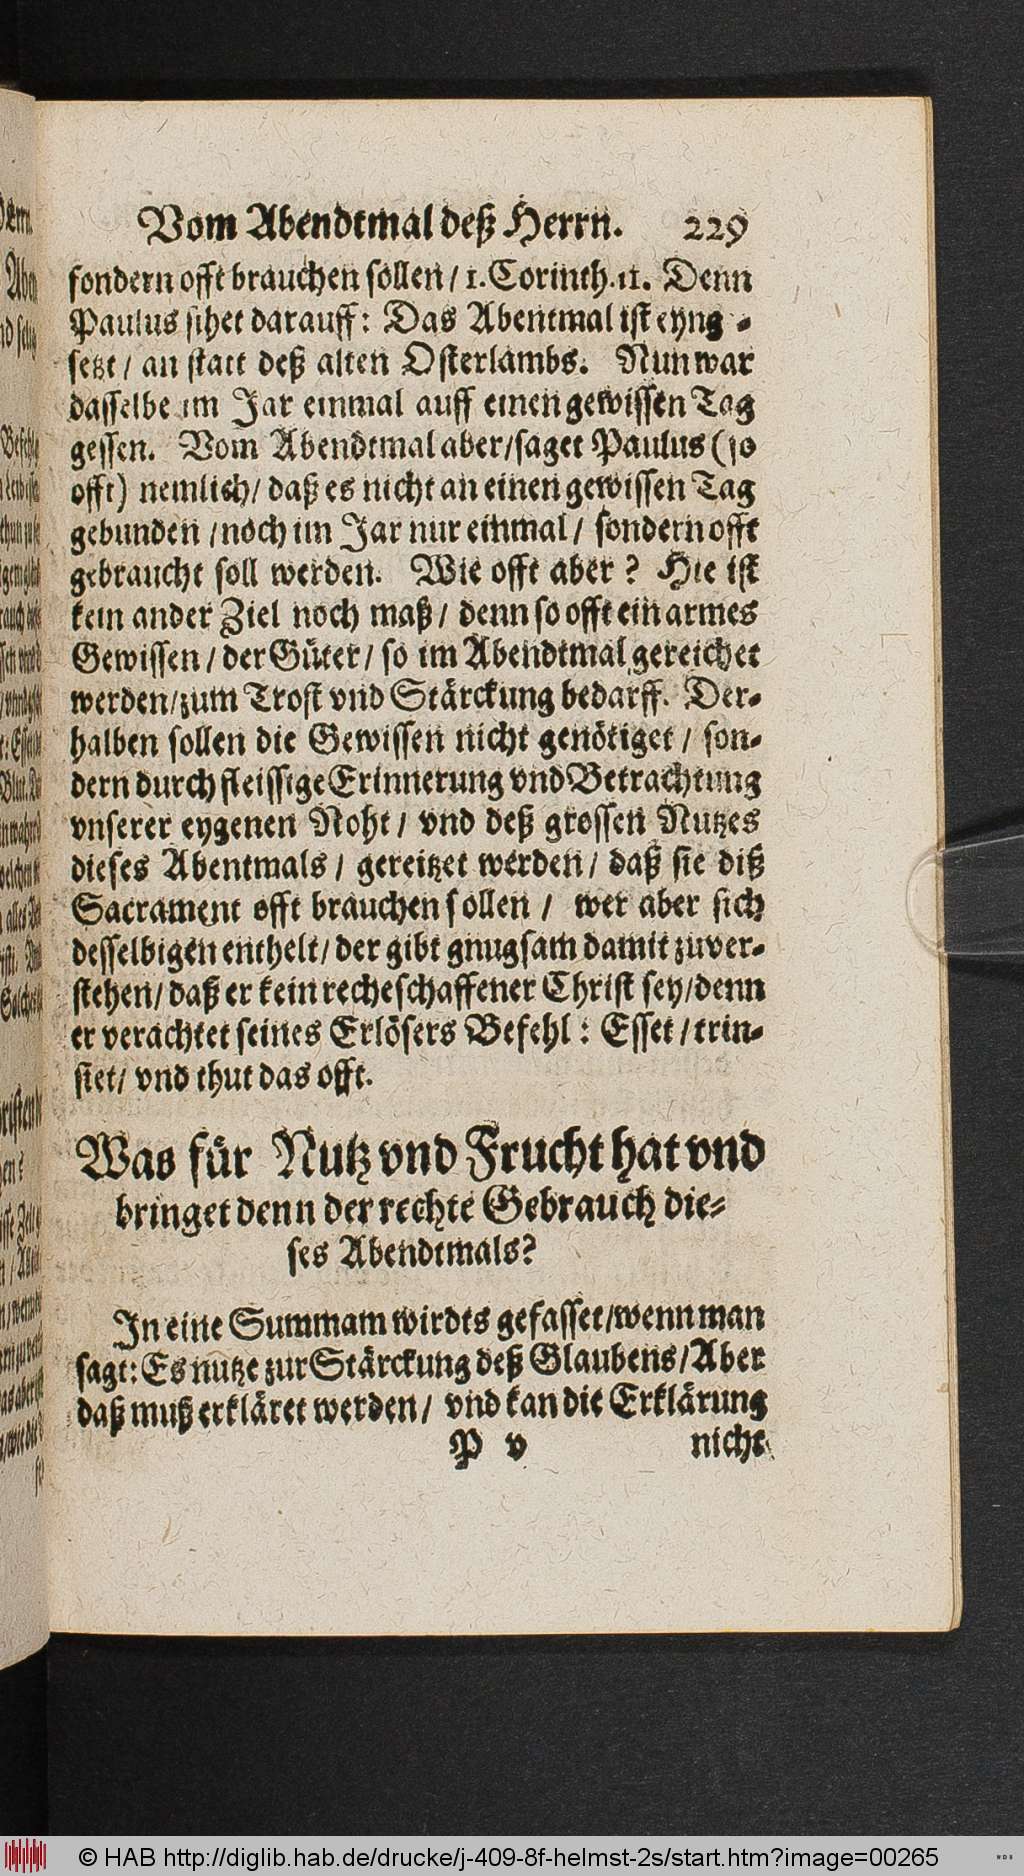 Vom Abendtmal deß Herrn. 229
sondern offt brauchen sollen / 1. Corinth. 11. Denn
Paulus sihet darauff: Das Abentmal ist eyng-
setzt / an statt deß alten Osterlambs. Nun war
dasselbe im Jar einmal auff einen gewissen Tag
gessen. Vom Abendtmal aber / saget Paulus (so
offt) nemlich / daß es nicht an einen gewissen Tag
gebunden / noch im Jar nur einmal / sondern offt
gebraucht soll werden. Wie offt aber? Hie ist
kein ander Ziel noch maß / denn so offt ein armes
Gewissen / der Güter / so im Abendtmal gereichet
werden / zum Trost vnd Stärckung bedarff. Der-
halben sollen die Gewissen nicht genötiget / son-
dern durch fleissige Erinnerung vnd Betrachtung
vnserer eygenen Noht / vnd deß grossen Nutzes
dieses Abentmals / gereitzet werden / daß sie diß
Sacrament offt brauchen sollen / wer aber sich
desselbigen enthelt / der gibt gnugsam damit zuver-
stehen / daß er kein recheschaffener Christ sey / denn
er verachtet seines Erlösers Befehl: Esset / trin-
ket / vnd thut das offt.
Was für Nutz vnd Frucht hat vnd
bringet denn der rechte Gebrauch die-
ses Abendtmals?
In eine Summam wirdts gefasset / wenn man
sagt: Es nutze zur Stärckung deß Glaubens / Aber
daß muß erkläret werden / vnd kan die Erklärung
P v nicht
© HAB http://diglib.hab.de/drucke/j-409-8f-helmst-2s/start.htm?image=00265